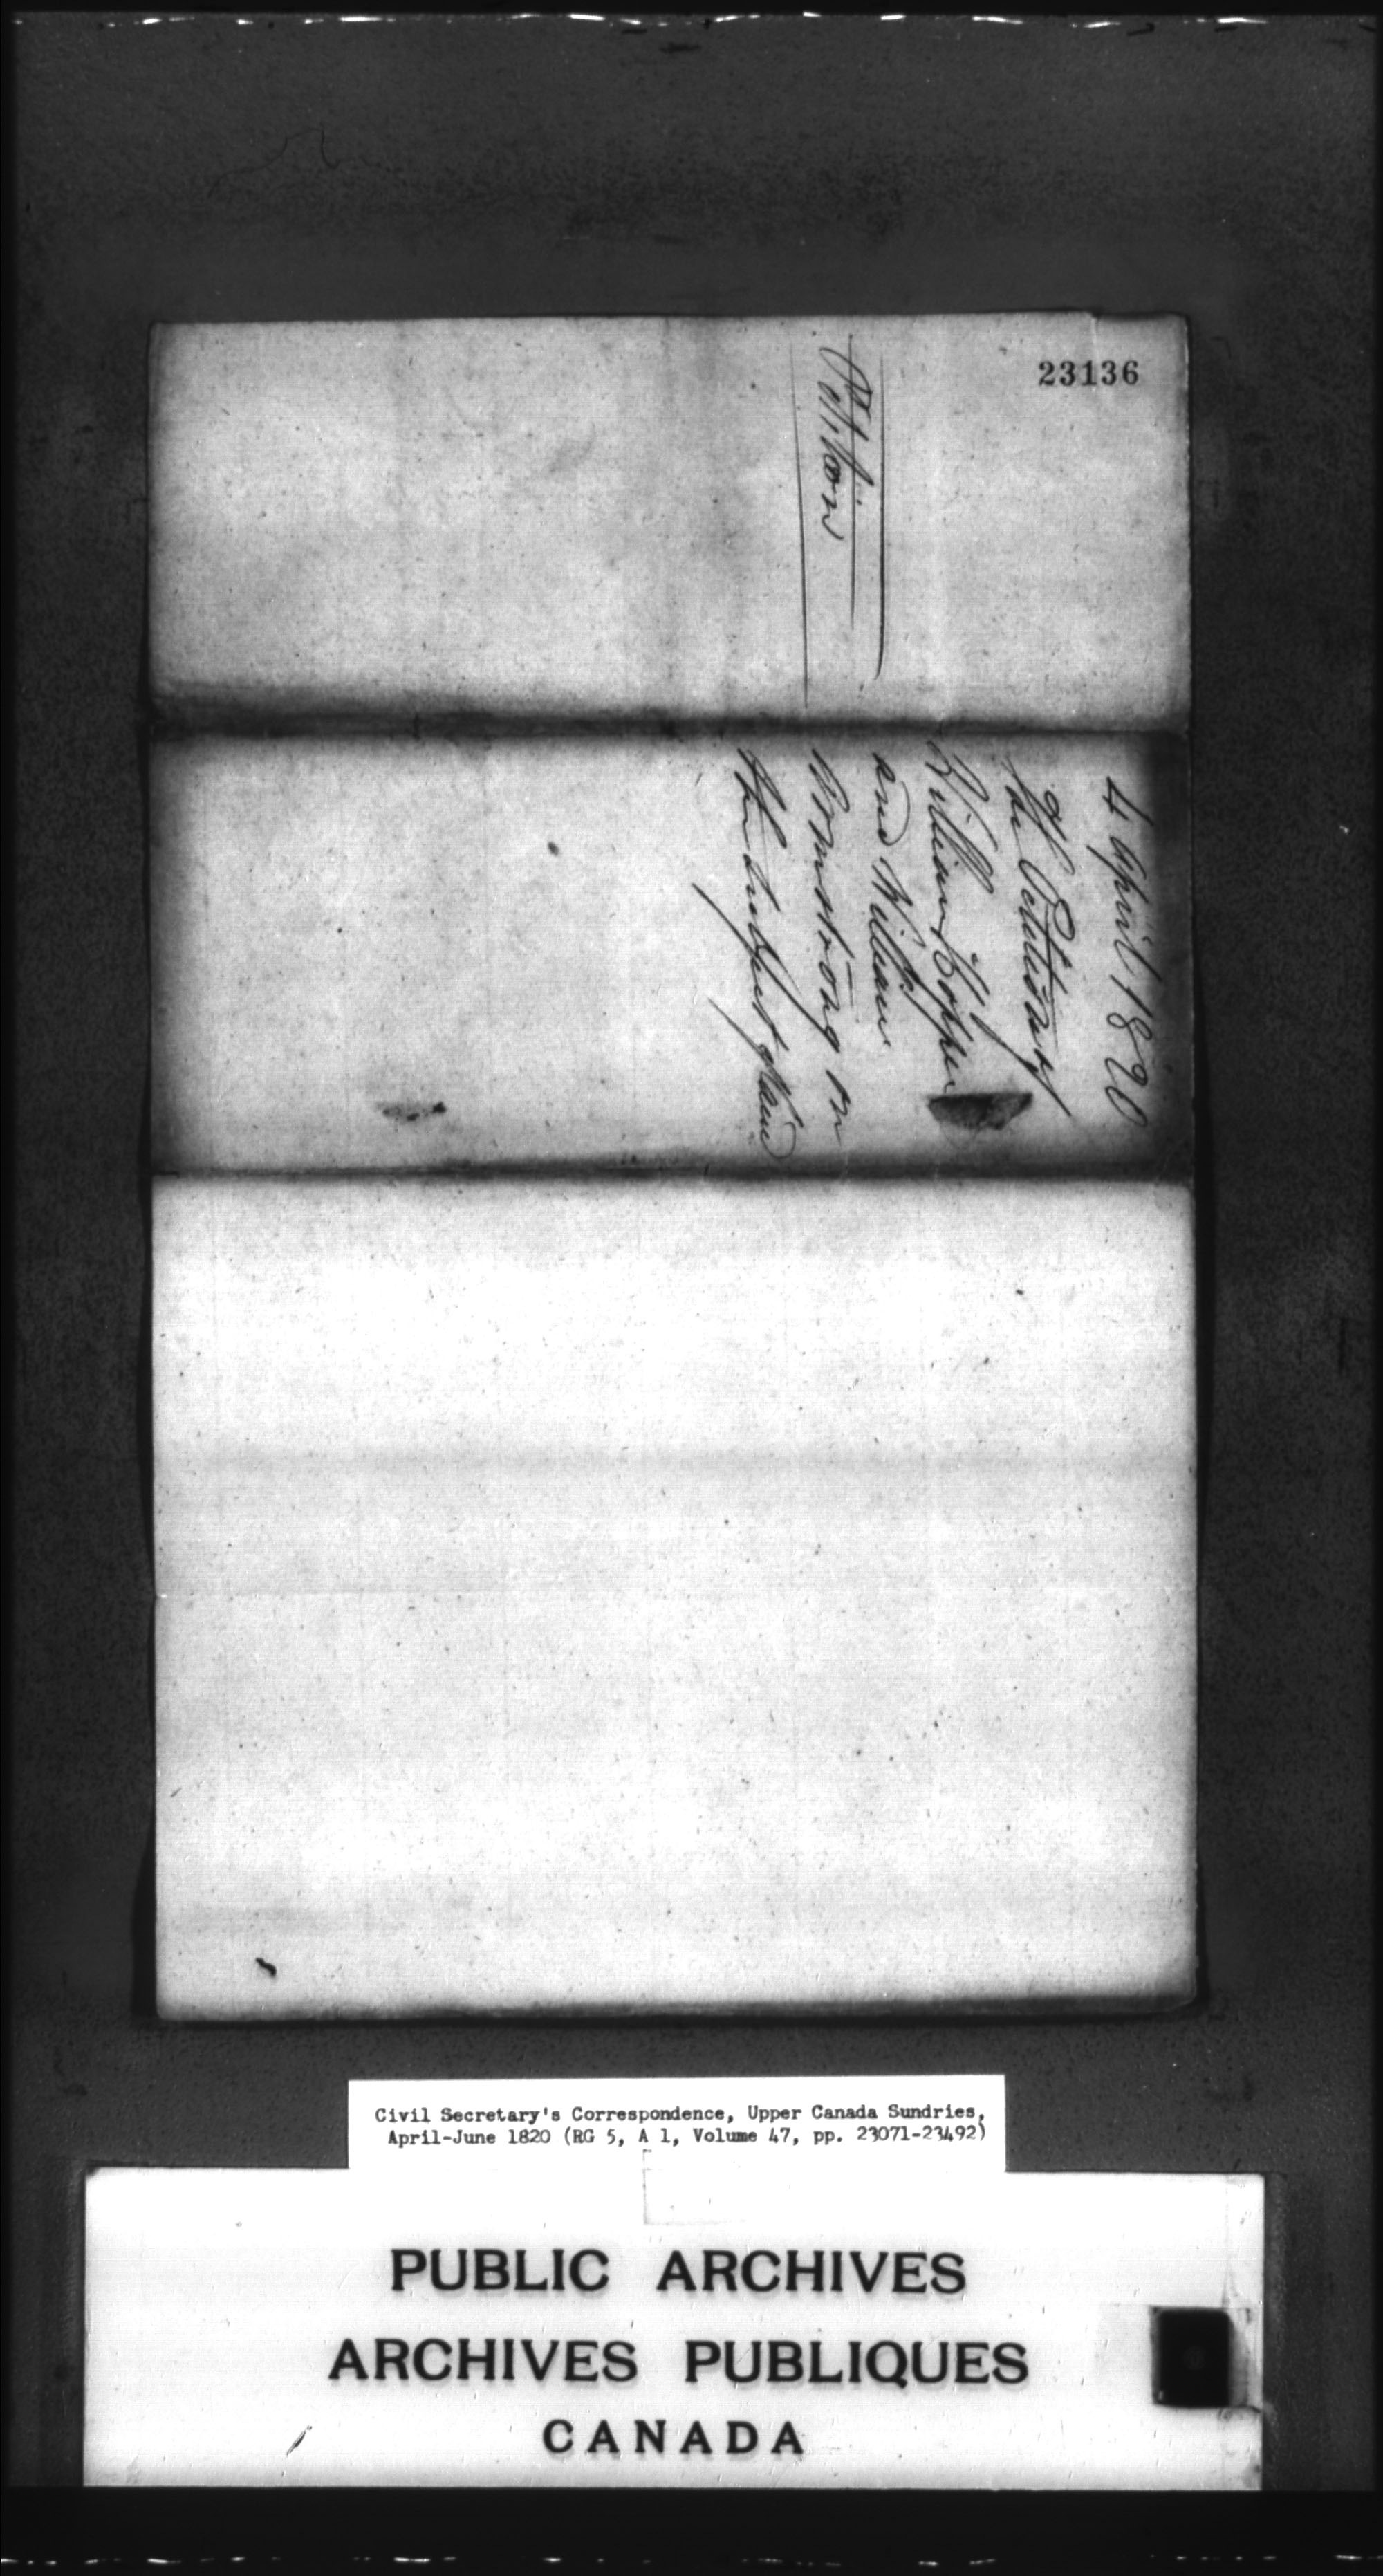 23136
Petition
4 April 1820
The Petition of
William Copper
and William
Armstrong on
the Subject of Land
Civil Secretary's Correspondence, Upper Canada Sundries,
April-June 1820 (RG 5, A 1, Volume 47, pp. 23071-23492)
PUBLIC ARCHIVES
ARCHIVES PUBLIQUES
CANADA